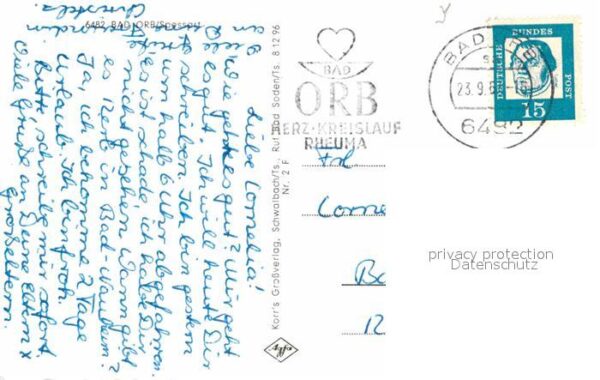 6482 BAD ORB/Spessart
Liebe Cornelia!
Wie geht es gut? Mir geht
es gut. Ich will heute Dir
schreiben. Ich bin gestern
um halb 6 Uhr abgefahren
es ist schade ich habe Dir
nicht gesehen. Wann gibt
es in Bad-Nauheim?
Ja, ich bekomme 2 Tage
Urlaub. Ich bin froh.
Bitte schreibe mir sofort.
Viele Grüße an Deine Eltern x
Großeltern.
Korr's Großverlag, Schwalbach/Ts., Ruf: Bad Soden/Ts. 8 12 96
Nr. 2 F
BAD
ORB
HERZ·KREISLAUF
RHEUMA
BAD
23.9.
6482
DEUTSCHE BUNDES POST
15
Frl
Corne
Ba
12
privacy protection
Datenschutz